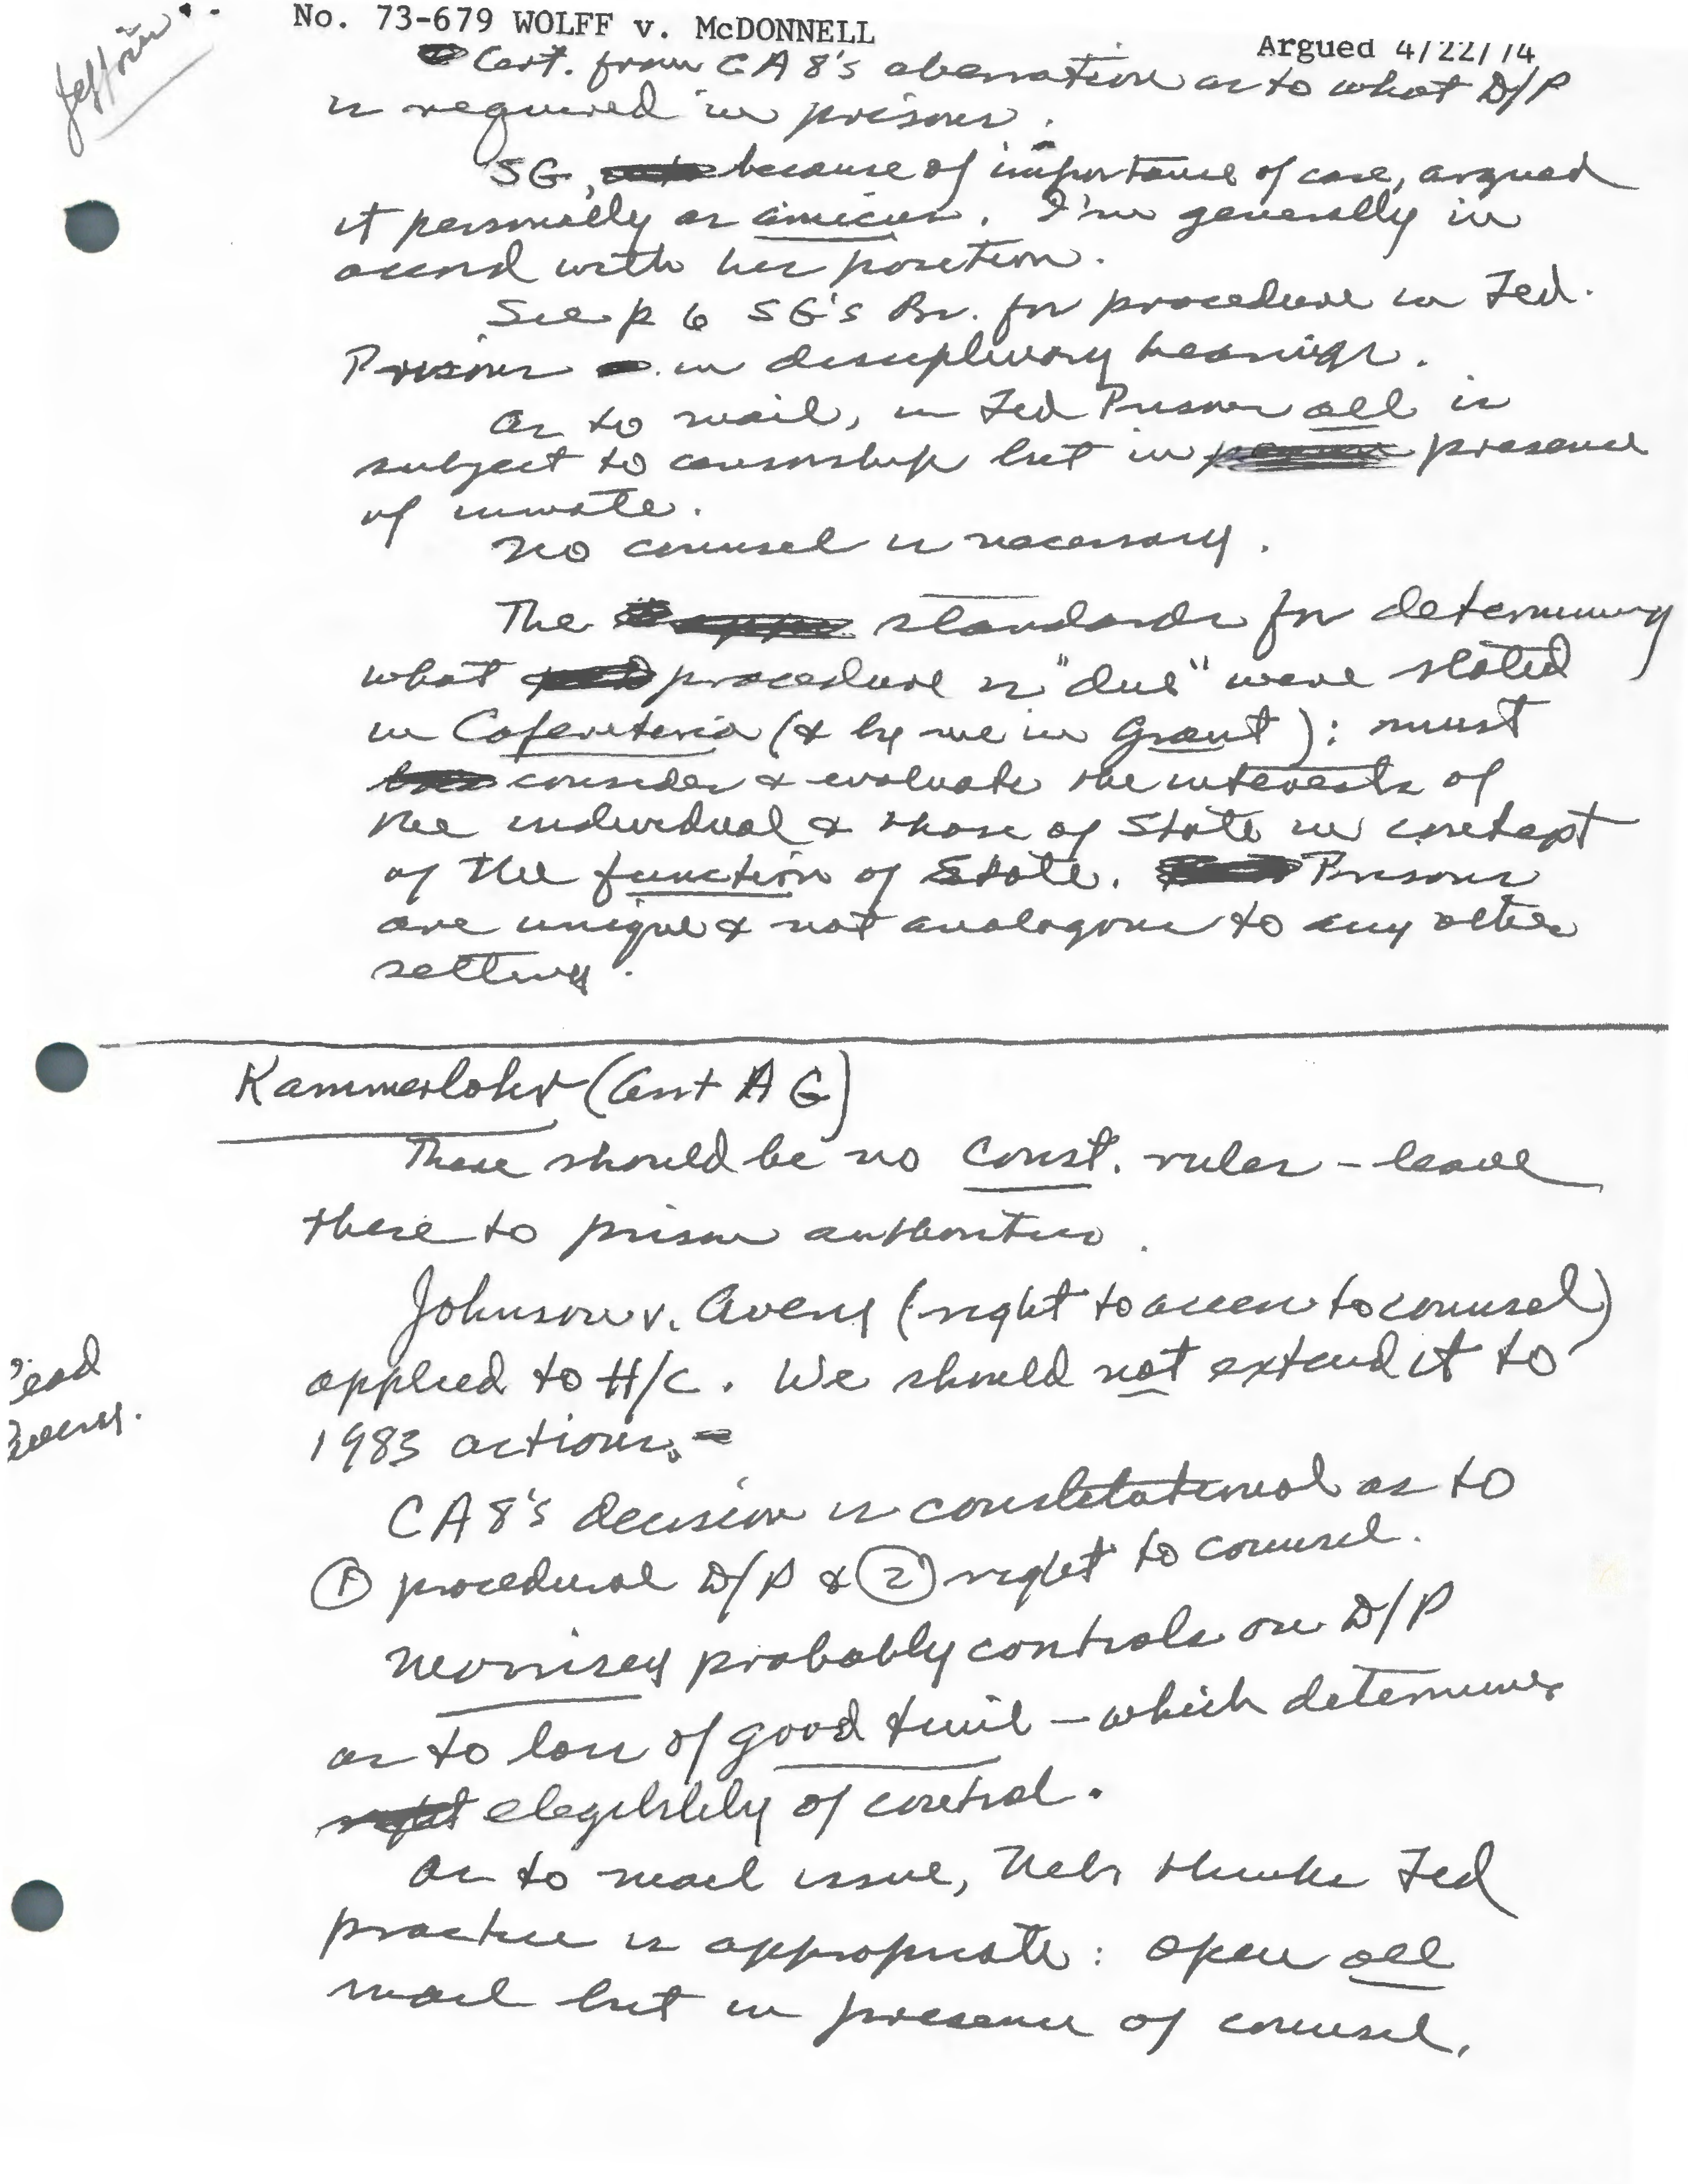 Jeffries
No. 73-679 WOLFF v. McDONNELL
Argued 4/22/74
Cert. from CA 8's aberration as to what D/P
is required in prisons.
SG, because of importance of case, argued
it personally as amicus. I'm generally in
accord with his position.
See p 6 SG's Br. for procedure in Fed.
Prisons in disciplinary hearings.
As to mail, in Fed Prisons all is
subject to censorship but in presence
of inmate.
No counsel is necessary.
The standards for determining
what procedure is "due" were stated
in Cafeteria (& by me in Grant): must
consider & evaluate the interests of
the individual & those of State in context
of the function of State. Prisons
are unique & not analogous to any other
setting.
Kammerlohr (Asst A G)
There should be no Const. rules - leave
these to prison authorities.
Johnson v. Avery (right to access to counsel)
applied to H/C. We should not extend it to
1983 actions.
Read
Avery.
CA 8's decision is constitutional as to
① procedural D/P & ② right to counsel.
Morrissey probably controls on D/P
as to loss of good time - which determines
elegibility of control.
As to mail issue, Nebr thinks Fed
practice is appropriate: open all
mail but in presence of counsel.